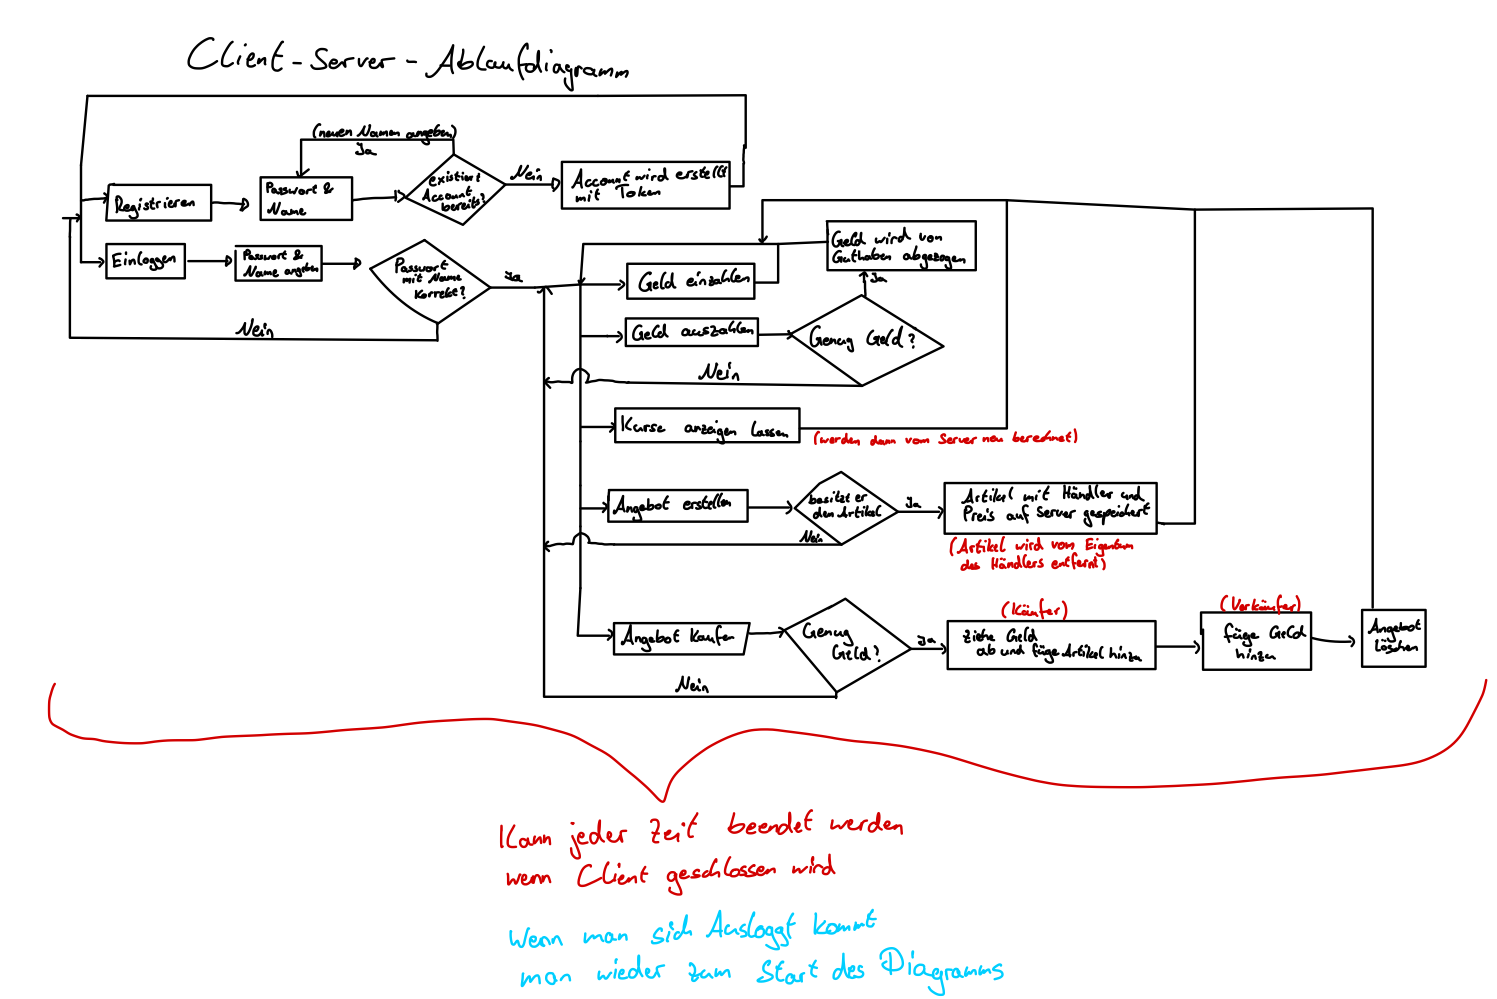 Client-Server-Ablaufdiagramm
(neuen Namen angeben)
Ja
Registrieren
Passwort &
Name
existiert
Account
bereits?
Nein
Account wird erstellt
mit Token
Einloggen
Passwort &
Name angeben
Passwort
mit Name
Korrekt?
Ja
Nein
Geld einzahlen
Geld wird von
Guthaben abgezogen
Ja
Geld auszahlen
Genug Geld?
Nein
Kurse anzeigen lassen
(werden dann vom Server neu berechnet)
Angebot erstellen
besitzt er
den Artikel
Ja
Nein
Artikel mit Händler und
Preis auf Server gespeichert
(Artikel wird vom Eigentum
des Händlers entfernt)
Angebot kaufen
Genug
Geld?
Ja
Nein
(Käufer)
ziehe Geld
ab und füge Artikel hinzu
(Verkäufer)
füge Geld
hinzu
Angebot
löschen
Kann jeder Zeit beendet werden
wenn Client geschlossen wird
Wenn man sich Ausloggt kommt
man wieder zum Start des Diagramms